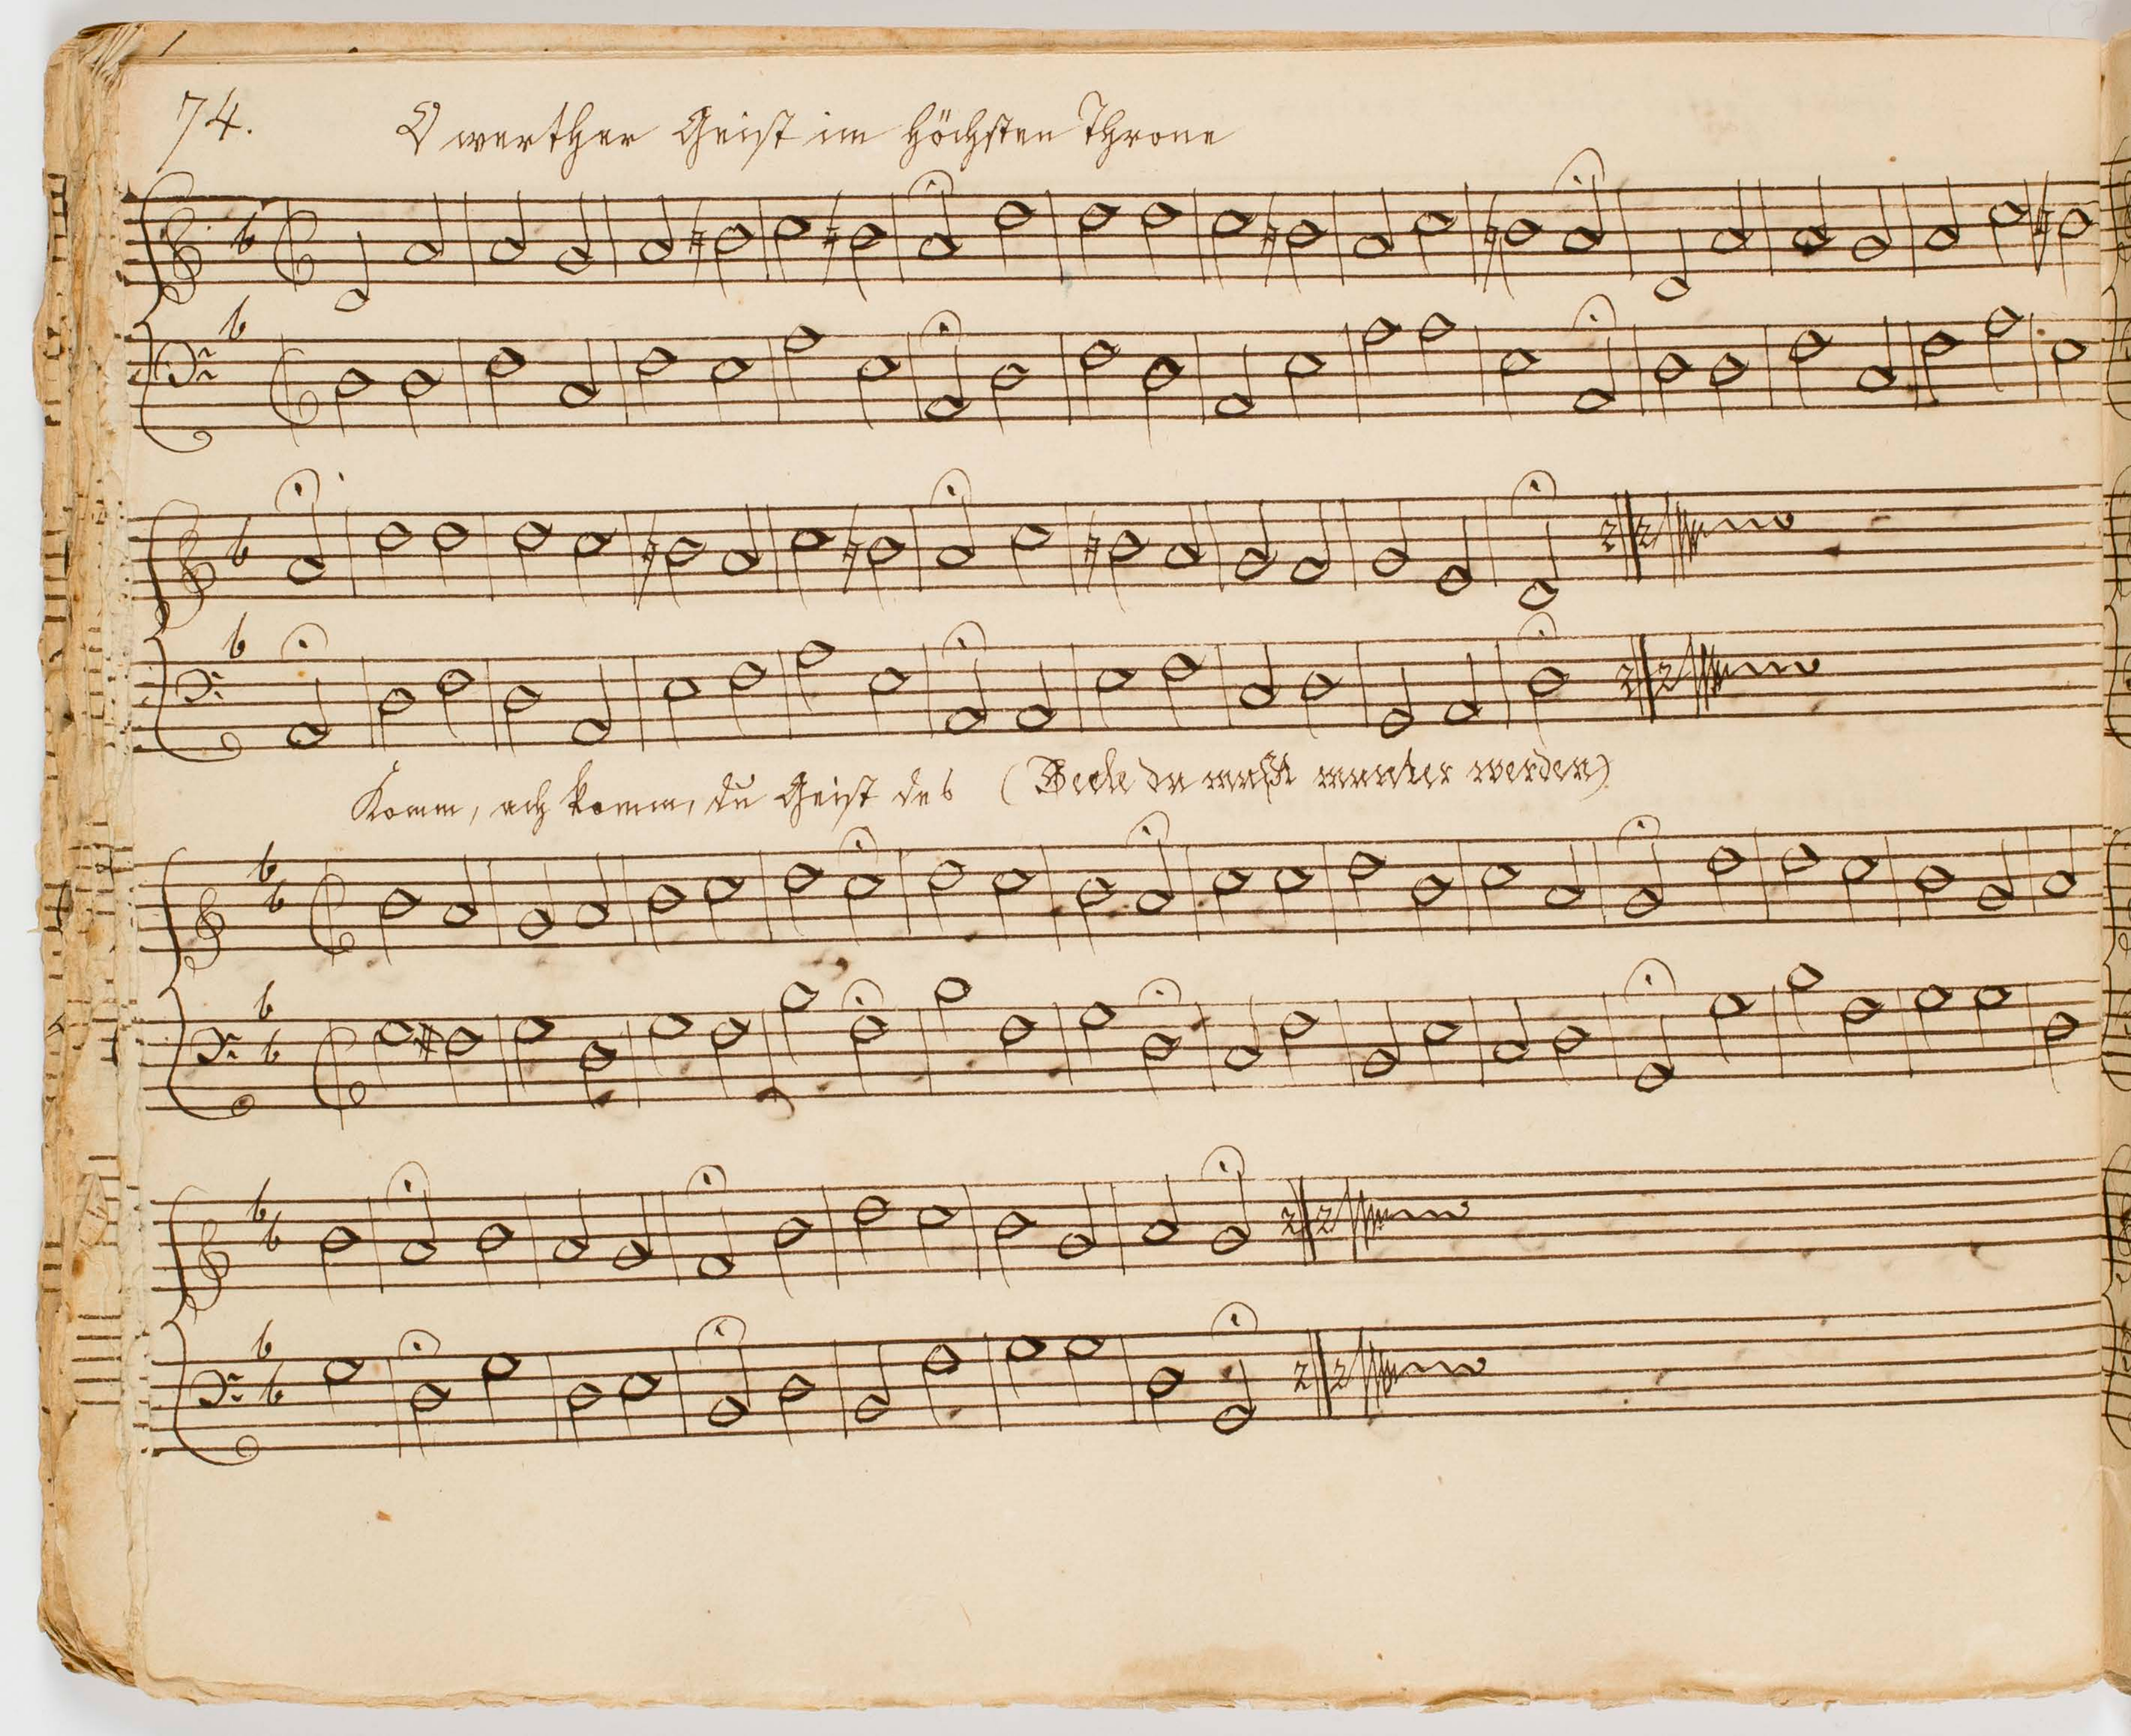 74.
O werther Geist im höchsten Throne
Komm, ach komm, du Geist des (Seele du mußt munter werden)